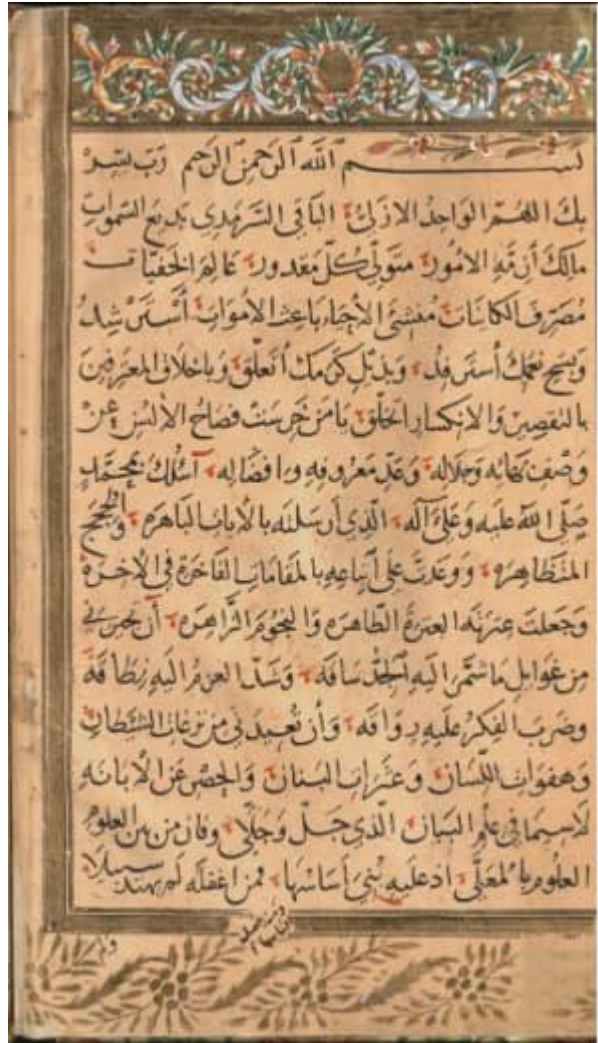 بسم الله الرحمن الرحيم رب يسر
بك اللهم الواحد الازلي الباقي السرمدي بديع السموات
مالك أزمة الامور متولي كل مقدور عالم الخفيات
مصرف الكائنات مفشئ الأحياء باعث الأموات أسترشد
نعمك أسترفد وبذيل كرمك أتعلق وباخلاق المعترفين
بالتقصير والانكسار أتخلق يا من خرست فصاح الألسن عن
وصف وجلاله وعد معروفه وافضاله أسئلك بمحمد
صلى الله عليه وعلى آله الذي أرسلته بالآيات الباهره والحجج
المتظاهره ووعدت على اتباعه بالمقامات الفاخرة في الآخرة
وجعلت عترته العترة الطاهره والنجوم الزاهره أن تحرسني
من غوايل ما شمر اليه الجد ساقه وشد العزم اليه نطاقه
وضرب الفكر عليه رواقه وأن تعيذني من نزغات الشيطان
وهفوات اللسان وعثرات البنان والحصر عن الابانه
لاسيما في علم البيان الذي جل وجلا وفاز من بين العلوم
العلوم بالمعلى اذ عليه بني أساسها فمن اغفله لم يهتد سبيلا